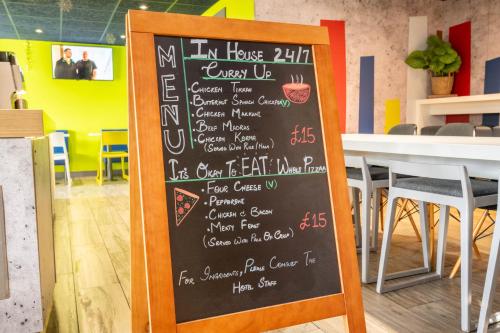 MENU
In House 24/7
Curry Up
• Chicken Tikka
• Butternut Spinach Chickpea (V)
• Chicken Makhani
• Beef Madras
• Chicken Korma
(Served With Rice / Naan)
£15
It's Okay To "EAT" Whole Pizza
• Four Cheese (V)
• Pepperoni
• Chicken & Bacon
• Meaty Feast
(Served With Pack Of Crisp)
£15
For Ingredients, Please Consult The
Hotel Staff